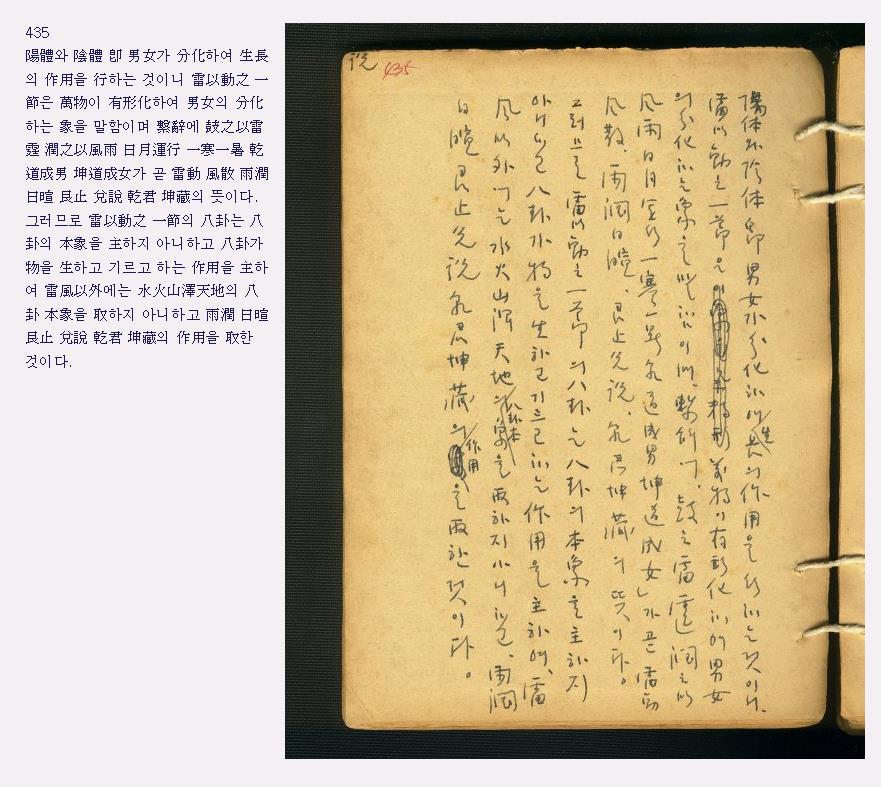 435
陽體와 陰體 卽 男女가 分化하여 生長
의 作用을 行하는 것이니 雷以動之 一
節은 萬物이 有形化하여 男女의 分化
하는 象을 말함이며 繫辭에 鼓之以雷
霆 潤之以風雨 日月運行 一寒一暑 乾
道成男 坤道成女가 곧 雷動 風散 雨潤
日暄 艮止 兌說 乾君 坤藏의 뜻이다.
그러므로 雷以動之 一節의 八卦는 八
卦의 本象을 主하지 아니하고 八卦가
物을 生하고 기르고 하는 作用을 主하
여 雷風以外에는 水火山澤天地의 八
卦 本象을 取하지 아니하고 雨潤 日暄
艮止 兌說 乾君 坤藏의 作用을 取한
것이다.
說 435
陽体와 陰体 卽 男女가 分化하여 生長의 作用을 行하는 것이니.
雷以動之 一節은 萬物이 有形化하여 男女
의 分化하는 象을 말함이며, 繫辭에, 鼓之雷霆 潤之以
風雨 日月運行 一寒一暑 乾道成男 坤道成女」가 곧 雷動
風散、雨潤 日暄、艮止 兌說、乾君 坤藏의 뜻이다。
그러므로 雷以動之 一節의 八卦는 八卦의 本象을 主하지
아니하고 八卦가 物을 生하고 기르고 하는 作用을 主하여、雷
風以外에는 水火山澤 天地의 八卦本象을 取하지 아니하고、雨潤
日暄 艮止 兌說 乾君 坤藏의 作用을 取한 것이다。